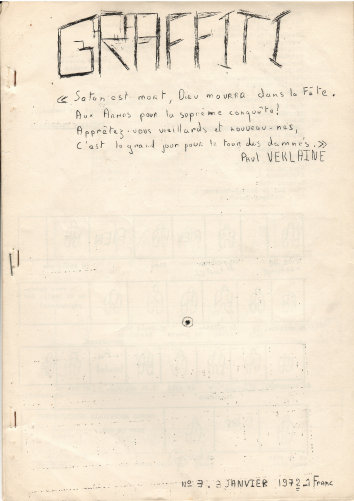 GRAFFITI
« Satan est mort, Dieu mourra dans la Fête.
Aux Armes pour la suprême conquête!
Apprêtez-vous vieillards et nouveau-nés,
C'est le grand jour pour le tour des damnés.»
Paul VERLAINE
No 7. 2 JANVIER 1972 1 Franc